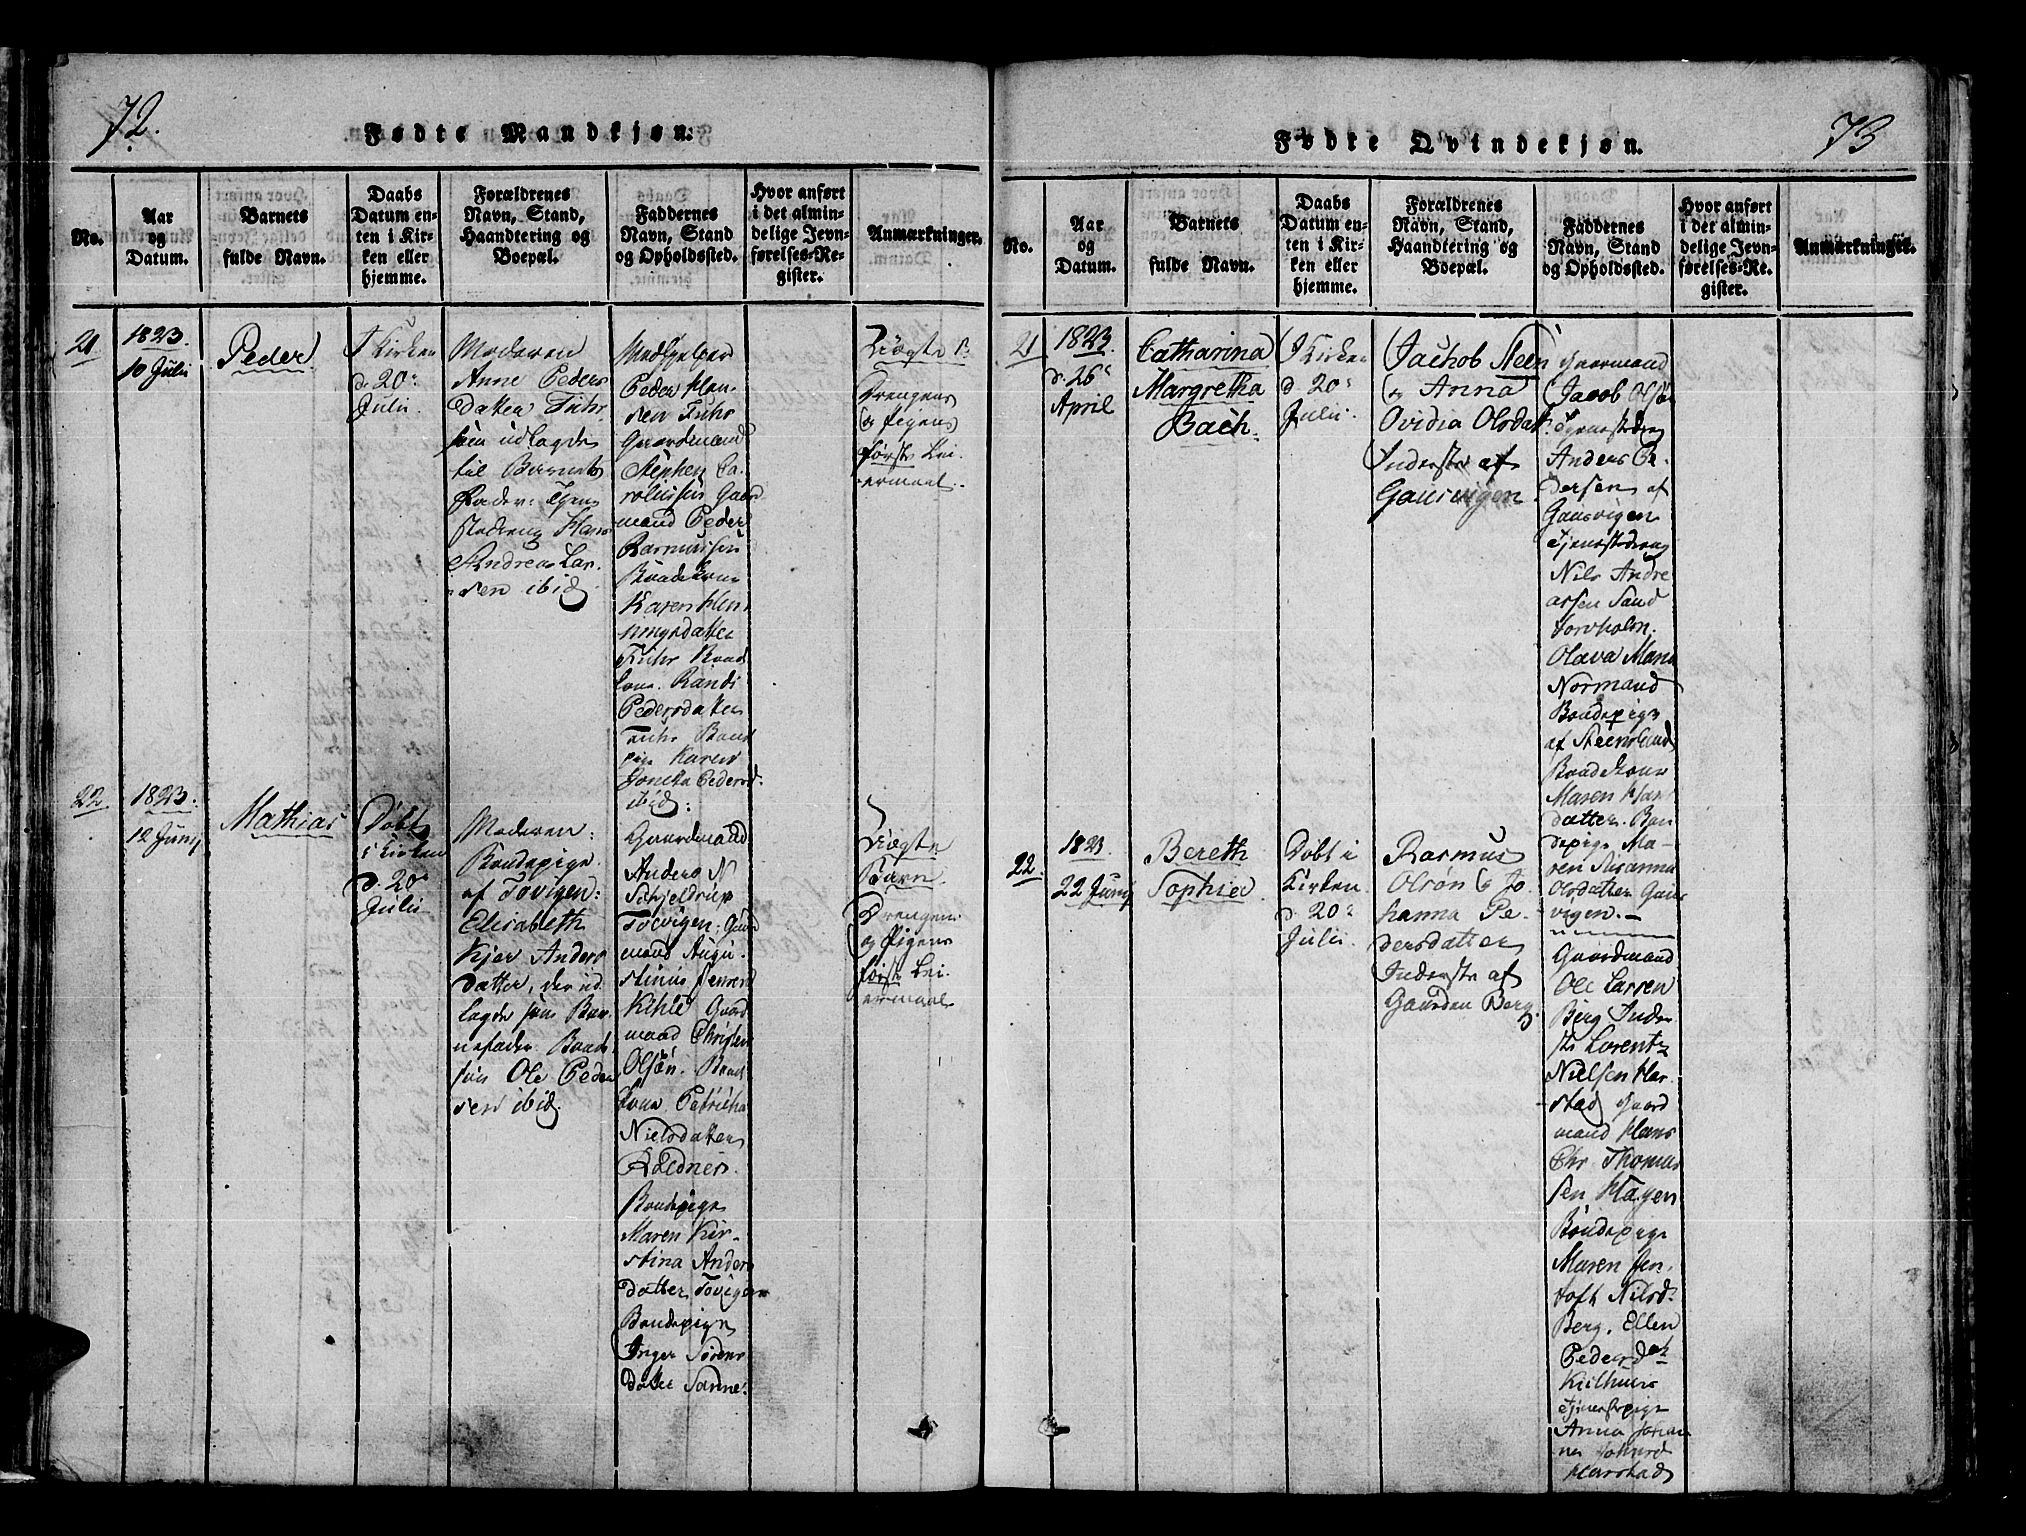 72.
Fødte Mandkjøn.
No.
Aar
og
Datum.
Barnets
fulde Navn.
Daabs
Datum en-
ten i Kir-
ken eller
hjemme.
Forældrenes
Navn, Stand,
Haandtering og
Boepæl.
Faddernes
Navn, Stand
og Opholdssted.
Hvor anført
i det almin-
delige Jevn-
førelses-Re-
gister.
Anmærkninger.
21
1823.
10 Julii
Peder
I Kirken
d. 20de
Julii.
Moderen
Anne Peders
Datter Fuhr
som udlagde
til Barnets
Fader: Tjene
stedreng Hans
Andreas Lar-
sen ibid.
Peder Han-
sen Fuhr
Gaardmand
Stephen Ca-
roliussen Gaard
mand Peder
Rasmussen
Bondekone
Karen Hen
ningsdatter
Fuhr Bond
kone Randi
Pedersdatter
Fuhr Bond
pige Karen
Pedersd.
ibid:
Uægte B:
Drengens
og Pigens
første Lei-
ermaal.
22
1823.
12 Junij
Mathias
Døbt
i Kirken
d. 20de
Julii
Moderen:
Bondepige
af Tovigen:
Elisabeth
Kjer Anders
datter, der ud
lagde som Bar-
nefader Bonde
søn Ole Peder
sen ibid.
Gaardmand
Anders N
Schjeldrup
Tovigen: Gaard
mand Augu-
stinus Jensen
Kihle Gaard
mand Christen
Olsøn. Bond
kone Petricha
Nielsdatter
Bondepige
Maren Kir-
stina Anders
datter Tovigen
Bondepige
Inger Sørens
datter Sanne:
Uægte
Barn.
Drengens
og Pigens
første Lei-
ermaal
73
Fødte Qvindekjøn.
No.
Aar
og
Datum.
Barnets
fulde Navn.
Daabs
Datum en-
ten i Kir-
ken eller
hjemme.
Forældrenes
Navn, Stand,
Haandtering og
Boepæl.
Faddernes
Navn, Stand
og Opholdssted.
Hvor anført
i det almin-
delige Jevn-
førelses-Re-
gister.
Anmærkninger.
21
1823.
d. 26de
April
Catharina
Margretha
Bach.
I Kirken
d. 20de
Julii.
Jachob Steen
og Anna
Ovidia Olsdatt.
Inderste af
Gausvigen
Gaardmand
Jacob Olsøn
Tjenestedreng
Anders Pe-
dersen af
Gausvigen
Tjenestedreng
Nils Andre
assen Sand
torvholm.
Olava Maria
Normand
Bondepige
af Steensland
Bondekone
Maren Han
datter. Bon
depige Ma-
ren Susanna
Olsdatter Gaus
vigen.
22.
1823.
22 Junij
Bereth
Sophia
Døbt i
Kirken
d. 20de
Julii.
Rasmus
Olsøn og Jo-
hanna Pe-
dersdatter
Inderste af
Gaarden Berg.
Gaardmand
Ole Larsen
Berg Inder
ste Lorentz
Nielsen Har
stad Gaard
mand Hans
Chr. Thomas
sen Hagen
Bondepige
Maren Jen-
toft Nilsd.
Berg. Ellen
Pedersdatt
Kilhuus
Tjenestepige
Anna Johan
Harstad